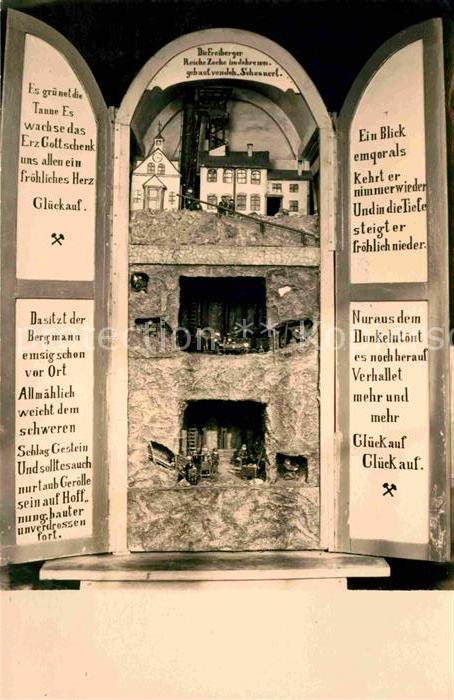 Die Freiberger
Reiche Zeche im Jahre
gebaut von
Es grünet die
Tanne Es
wachse das
Erz Gott schenk
uns allen ein
fröhliches Herz
Glückauf.
Da sitzt der
Bergmann
emsig schon
vor Ort
Allmählich
weicht dem
schweren
Schlag Gestein
Und sollte s auch
nur taub Gerölle
sein auf Hoff„
nung bauter
unverdrossen
fort.
Ein Blick
empor als
Kehrt er
nimmer wieder
Und in die Tiefe
steigt er
fröhlich nieder.
Nur aus dem
Dunkeln tönt
es noch herauf
Verhallet
mehr und
mehr
Glückauf
Glückauf.
protection ** Ko